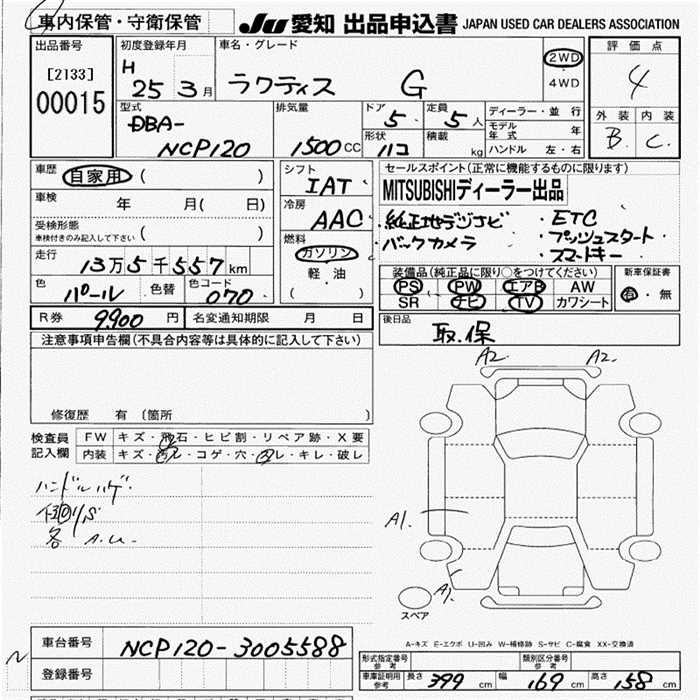 車内保管・守衛保管 JU 愛知 出品申込書 JAPAN USED CAR DEALERS ASSOCIATION
出品番号 初度登録年月 車名・グレード 2WD 評価点
[2133] H 25 3月 ラクティス G 4WD 4
00015 型式 排気量 ドア 5 定員 5人 ディーラー・並行 外装 内装
DBA- 形状 積載 モデル年式 年 B. C.
NCP120 1500CC ハコ kg ハンドル 左・右
車歴 自家用 ( ) シフト IAT セールスポイント(正常に機能するものに限ります)
車検 年 月( 日) 冷房 AAC MITSUBISHIディーラー出品
受検形態 純正地デジナビ ・ETC
車検付きのみ記入して下さい ( ) 燃料 バックカメラ ・プッシュスタート
走行 13万5千557km ガソリン ・スマートキー
軽・油 装備品(純正品に限り○をつけてください) 新車保証書
色 パール 色替 色コード 070 ( ) PS PW エアB AW 有・無
SR ナビ TV カワシート
R券 9,900円 名変通知期限 月 日 後日品
取.保
注意事項申告欄(不具合内容等は具体的に記入して下さい)
A2 A2.
修復歴 有 〔箇所 〕
検査員 FW キズ・飛石・ヒビ割・リペア跡・X要
記入欄 内装 キズ・汚レ・コゲ・穴・スレ・キレ・破レ
ハンドルハゲ
各 A.U.
A1.
A1.
スペア
A-キズ E-エクボ U-凹み W-補修跡 S-サビ C-腐食 XX-交換済
車台番号 NCP120-3005588
形式指定番号 参考 類別区分番号 参考
登録番号 車庫証明用 参考 長さ 399cm 幅 169cm 高さ 158cm